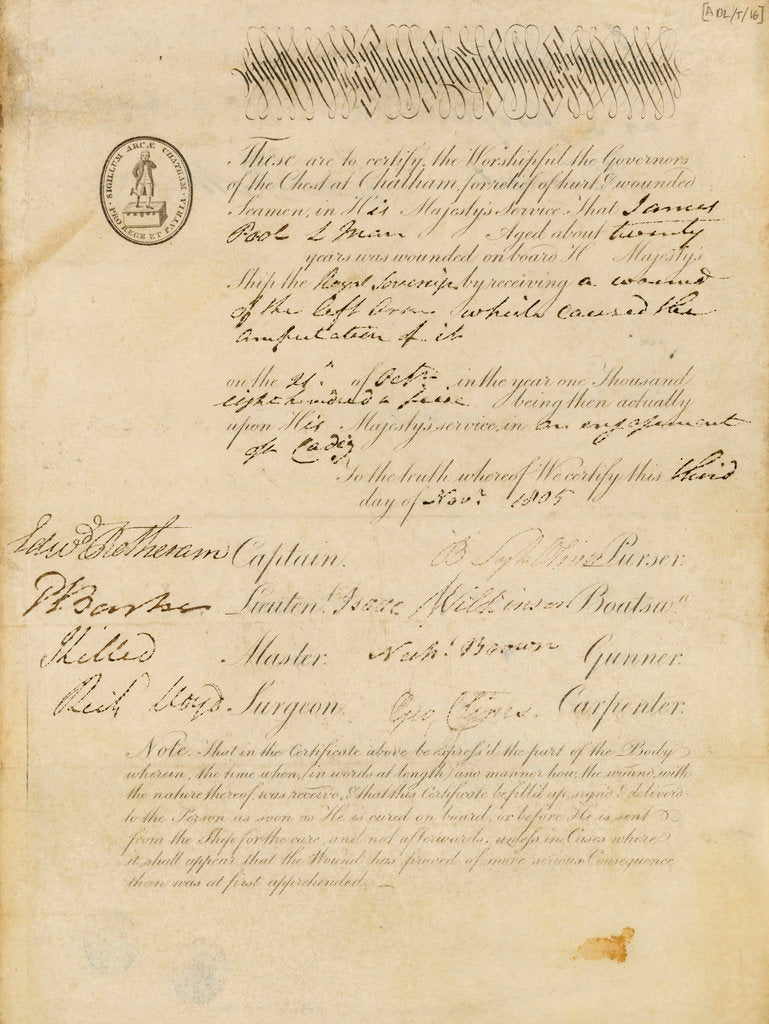 [ADL/T/16]
SIGILLUM ARCÆ CHATHAM
PRO REGE ET PATRIA
These are to certify, the Worshipful the Governors
of the Chest at Chatham, for relief of hurt & wounded
Seamen, in His Majesty's Service. That James
Pool L Man Aged about twenty
years was wounded on board H Majesty's
Ship the Royal Soverign by receiving a wound
of the left arm which caused the
amputation of it
on the 21st of Octr in the year one Thousand
eight hundred & five being then actually
upon His Majesty's service, in an engagement
off Cadiz
To the truth whereof We certify this third
day of Novr. 1805
Edwd Rotheram Captain. Purser.
Lieutent. Isaac Wilkinson Boatswn.
Killed Master. Brown Gunner.
Richd Lloyd Surgeon. Geo Carpenter.
Note. That in the Certificate above be express'd the part of the Body
wherein, the time when, (in words at length) and manner how, the wound, with
the nature thereof, was receiv'd, & that this Certificate be fill'd up, sign'd & deliver'd
to the Person as soon as He is cured on board, or before He is sent
from the Ship for the cure, and not afterwards, unless in Cases where
it shall appear that the Wound has proved of more serious Consequence
than was at first apprehended.